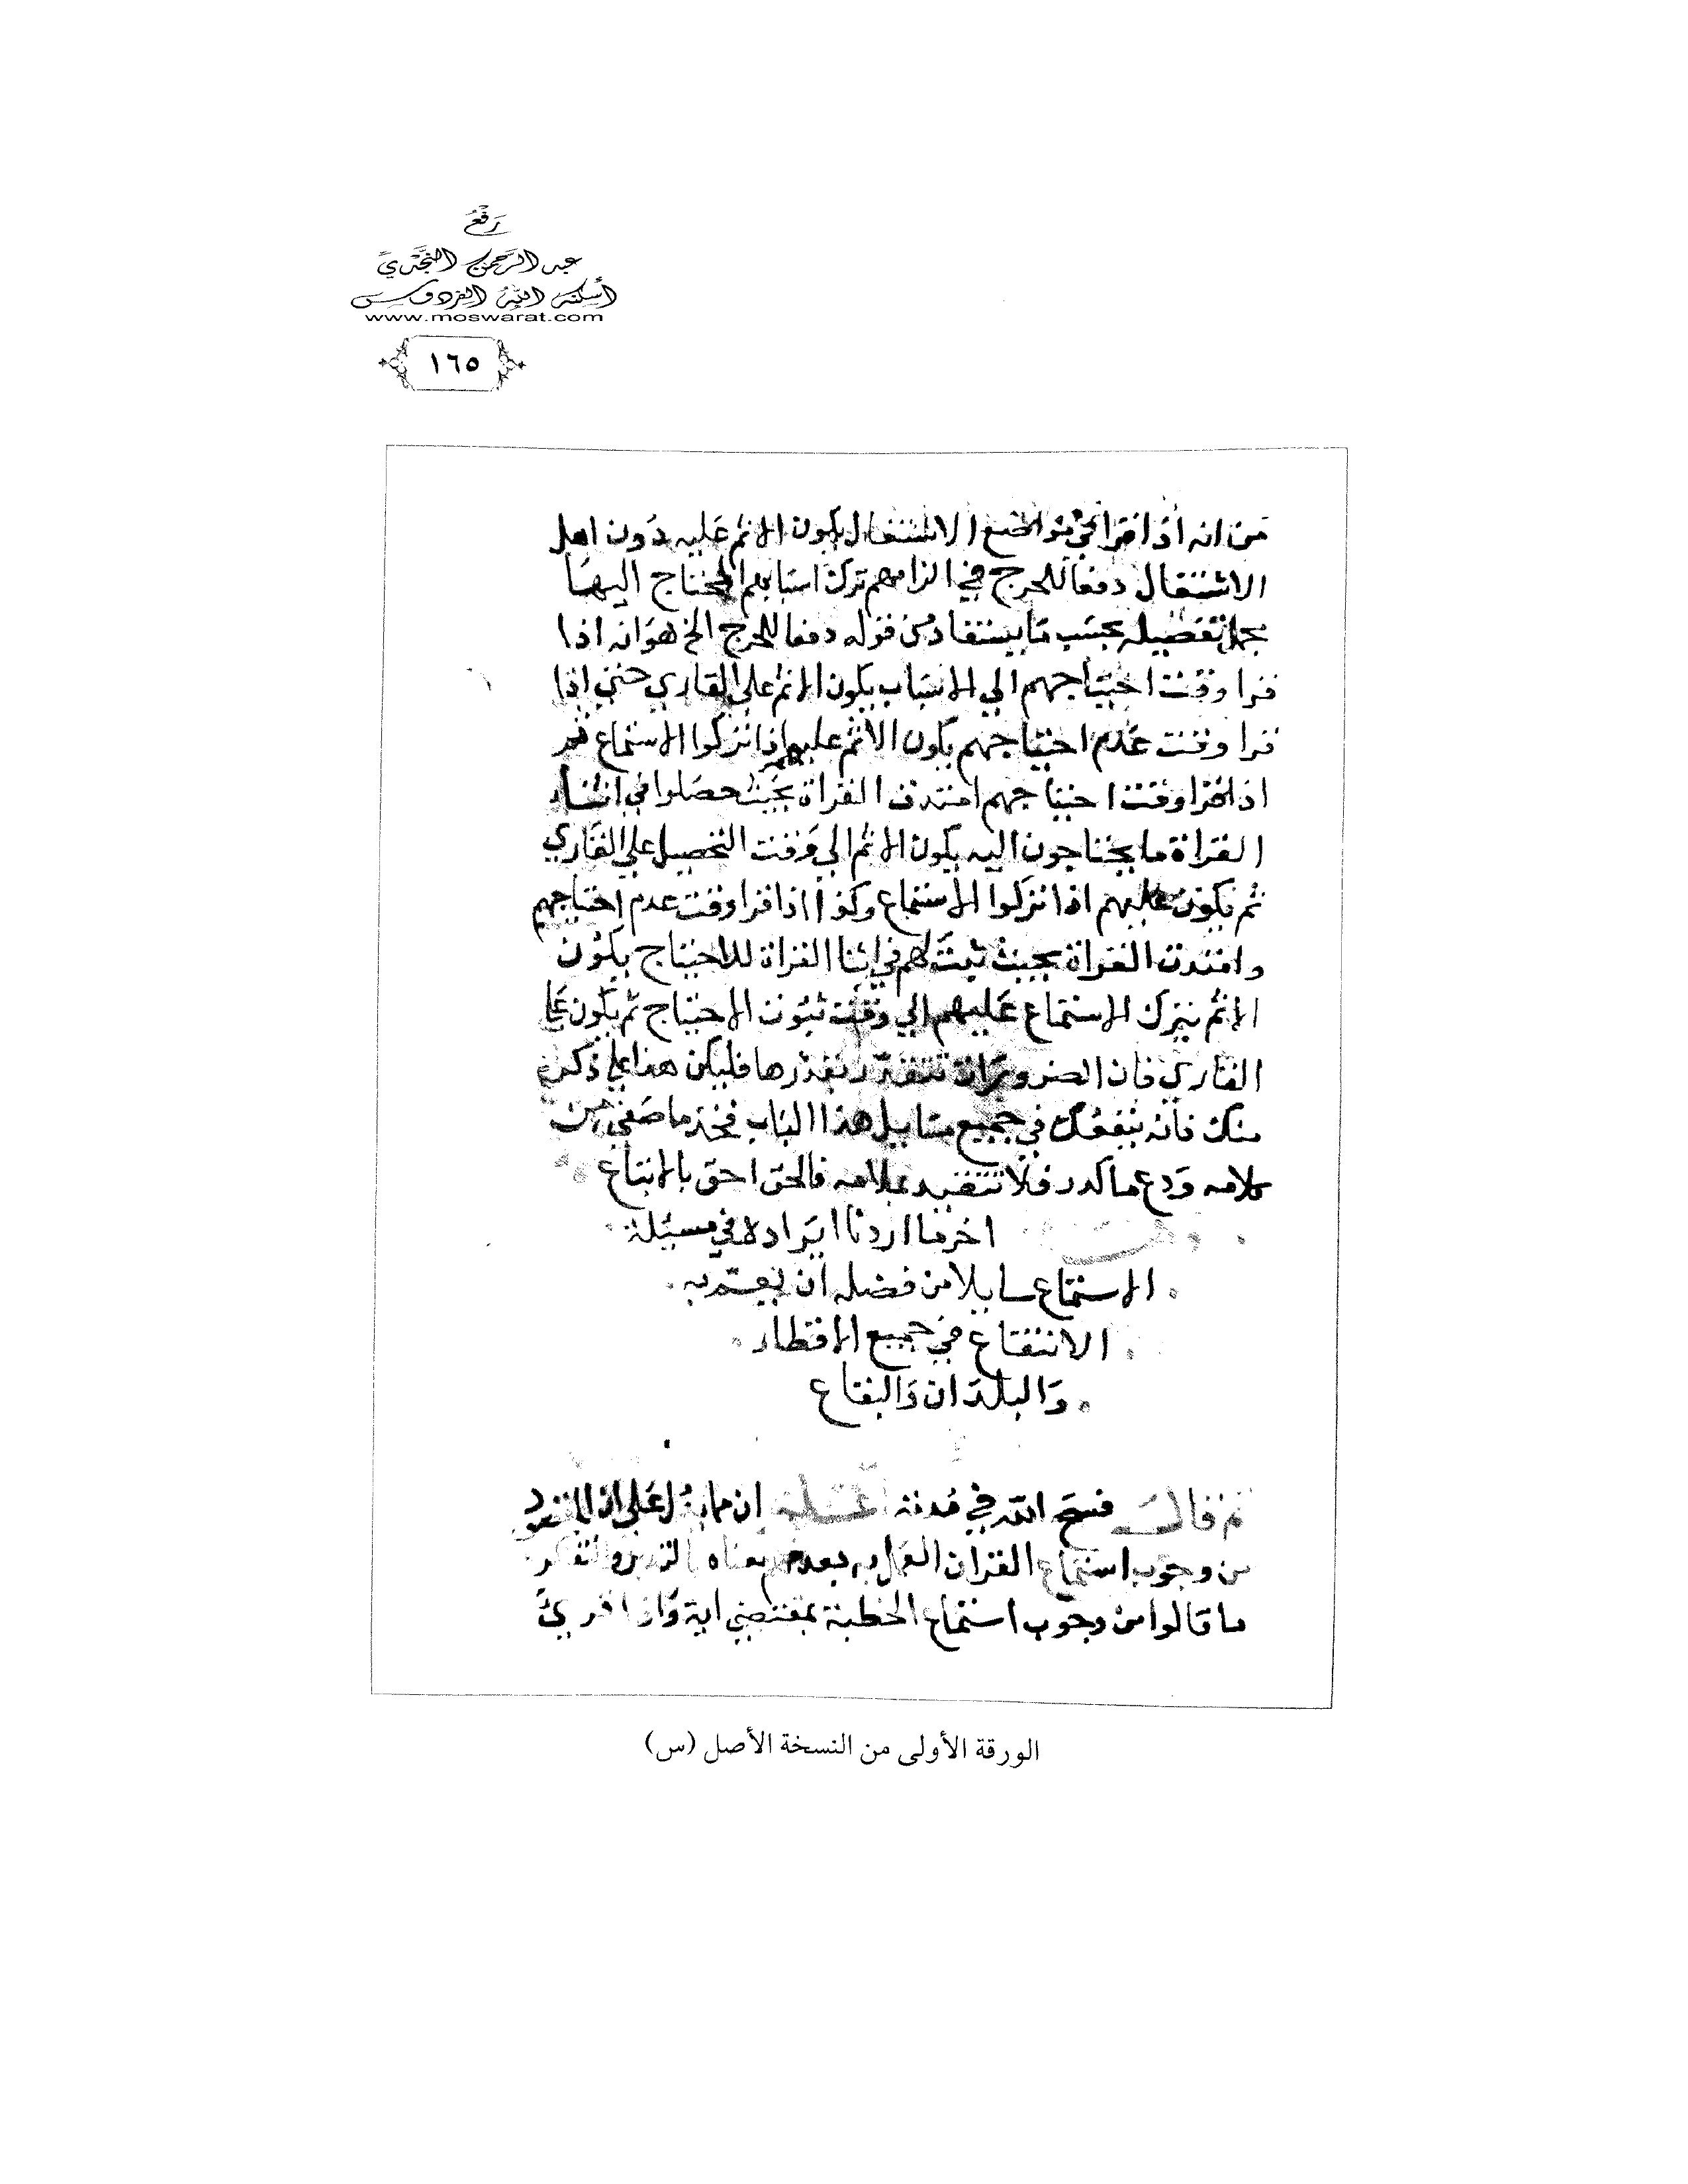 رَفْعُ
عبد الرحمن النجدي
أسكنه الله الفردوس
www.moswarat.com
١٦٥
من انه اذا قرا في مواضع الاشتغال يكون الاثم عليه دون اهل
الاشتغال دفعا للحرج في الزامهم ترك اسبابهم المحتاج اليها
تفصيله بحسب ما يستفاد من قوله دفعا للحرج الخ هو انه اذا
قرا وقت احتياجهم الي الاسباب يكون الاثم علي القاري حتي اذا
قرا وقت عدم احتياجهم يكون الاثم عليهم اذا تركوا الاستماع
اذا قرا وقت احتياجهم امتدت القراة بحيث حصلوا في اثناء
القراة ما يحتاجون اليه يكون الاثم الي وقت التحصيل علي القاري
ثم يكون عليهم اذا تركوا الاستماع وكذا اذا قرا وقت عدم احتياجهم
وامتدت القراة بحيث ثبت لهم في اثنا القراة للاحتياج يكون
الاثم بترك الاستماع عليهم الي وقت ثبوت الاحتياج ثم يكون علي
القاري فان الضرورات تتقدر بقدرها فليكن هذا علي ذكر
منك فانه ينفعك في جميع مسايل هذا الباب فخذ ما صفي من
كلامه ودع ما كدر فلا تتقيد بكلامه فالحق احق بالاتباع
اخر ما اردنا ايراده في مسيلة
الاستماع سايلا من فضله ان يعم به
الانتفاع في جميع الاقطار
والبلدان والبقاع
ثم قال فسح الله في مدته ان مما يدل علي ان المقصود
من وجوب استماع القران العمل به بعد فهم معناه
ما قالوا من وجوب استماع الخطبة بمقتضي اية واذا قريَ
الورقة الأولى من النسخة الأصل (س)